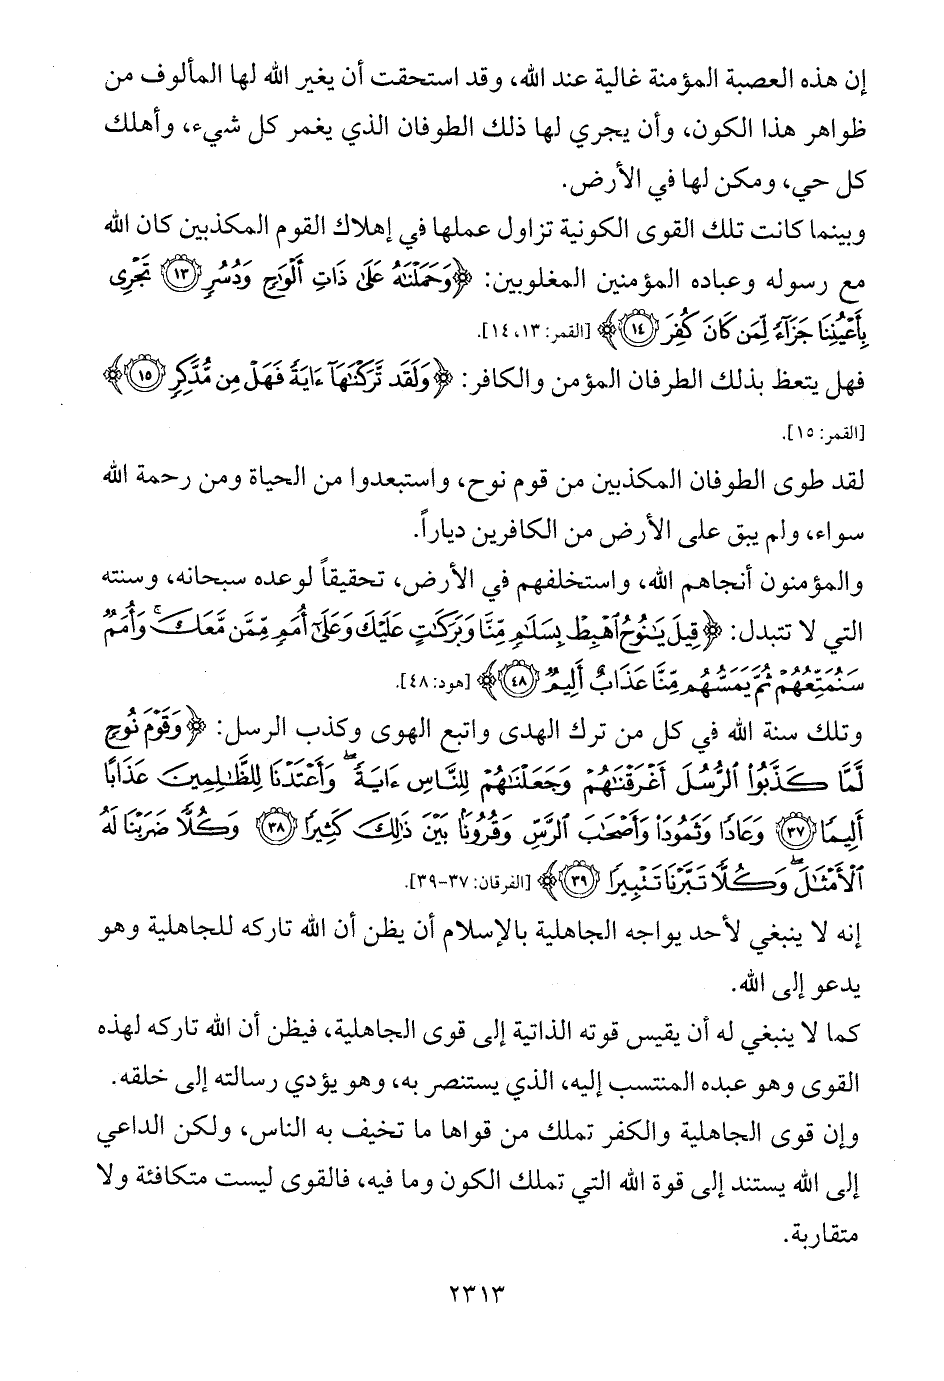 إن هذه العصبة المؤمنة غالية عند الله، وقد استحقت أن يغير الله لها المألوف من
ظواهر هذا الكون، وأن يجري لها ذلك الطوفان الذي يغمر كل شيء، وأهلك
كل حي، ومكن لها في الأرض.
وبينما كانت تلك القوى الكونية تزاول عملها في إهلاك القوم المكذبين كان الله
مع رسوله وعباده المؤمنين المغلوبين: ﴿وَحَمَلْنَٰهُ عَلَىٰ ذَاتِ أَلْوَٰحٍ وَدُسُرٍ ١٣ تَجْرِى
بِأَعْيُنِنَا جَزَآءً لِّمَن كَانَ كُفِرَ ١٤﴾ [القمر: ١٣، ١٤].
فهل يتعظ بذلك الطرفان المؤمن والكافر: ﴿وَلَقَد تَّرَكْنَٰهَآ ءَايَةً فَهَلْ مِن مُّدَّكِرٍ ١٥﴾
[القمر: ١٥].
لقد طوى الطوفان المكذبين من قوم نوح، واستبعدوا من الحياة ومن رحمة الله
سواء، ولم يبق على الأرض من الكافرين دياراً.
والمؤمنون أنجاهم الله، واستخلفهم في الأرض، تحقيقاً لوعده سبحانه، وسنته
التي لا تتبدل: ﴿قِيلَ يَٰنُوحُ ٱهْبِطْ بِسَلَٰمٍ مِّنَّا وَبَرَكَٰتٍ عَلَيْكَ وَعَلَىٰٓ أُمَمٍ مِّمَّن مَّعَكَ ۚ وَأُمَمٌ
سَنُمَتِّعُهُمْ ثُمَّ يَمَسُّهُم مِّنَّا عَذَابٌ أَلِيمٌ ٤٨﴾ [هود: ٤٨].
وتلك سنة الله في كل من ترك الهدى واتبع الهوى وكذب الرسل: ﴿وَقَوْمَ نُوحٍ
لَّمَّا كَذَّبُوا۟ ٱلرُّسُلَ أَغْرَقْنَٰهُمْ وَجَعَلْنَٰهُمْ لِلنَّاسِ ءَايَةً ۖ وَأَعْتَدْنَا لِلظَّٰلِمِينَ عَذَابًا
أَلِيمًا ٣٧ وَعَادًا وَثَمُودَا۟ وَأَصْحَٰبَ ٱلرَّسِّ وَقُرُونًۢا بَيْنَ ذَٰلِكَ كَثِيرًا ٣٨ وَكُلًّا ضَرَبْنَا لَهُ
ٱلْأَمْثَٰلَ ۖ وَكُلًّا تَبَّرْنَا تَتْبِيرًا ٣٩﴾ [الفرقان: ٣٧-٣٩].
إنه لا ينبغي لأحد يواجه الجاهلية بالإسلام أن يظن أن الله تاركه للجاهلية وهو
يدعو إلى الله.
كما لا ينبغي له أن يقيس قوته الذاتية إلى قوى الجاهلية، فيظن أن الله تاركه لهذه
القوى وهو عبده المنتسب إليه، الذي يستنصر به، وهو يؤدي رسالته إلى خلقه.
وإن قوى الجاهلية والكفر تملك من قواها ما تخيف به الناس، ولكن الداعي
إلى الله يستند إلى قوة الله التي تملك الكون وما فيه، فالقوى ليست متكافئة ولا
متقاربة.
٢٣١٣